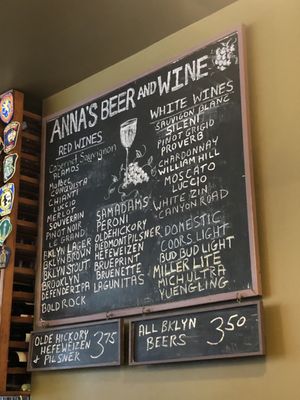 ANNA'S BEER AND WINE
RED WINES
Cabernet Sauvignon
ALAMOS
Malbec
CONQUISTA
CHIANTI
LUCCIO
MERLOT
SOUVERAIN
PINOT NOIR
LE GRAND
BKLYN LAGER
BKLYN BROWN
BKLYN STOUT
BROOKLYN
DEFENDER IPA
BOLD ROCK
SAM ADAMS
PERONI
OLDE HICKORY
PIEDMONT PILSNER
HEFEWEIZEN
BRUEPRINT
BRUENETTE
LAGUNITAS
WHITE WINES
SAUVIGON BLANC
SILENI
PINOT GRIGIO
PROVERB
CHARDONNAY
WILLIAM HILL
MOSCATO
LUCCIO
WHITE ZIN
CANYON ROAD
DOMESTIC
COORS LIGHT
BUD BUD LIGHT
MILLER LITE
MICH ULTRA
YUENGLING
OLDE HICKORY
HEFEWEIZEN
+ PILSNER
3.75
ALL BKLYN
BEERS
3.50